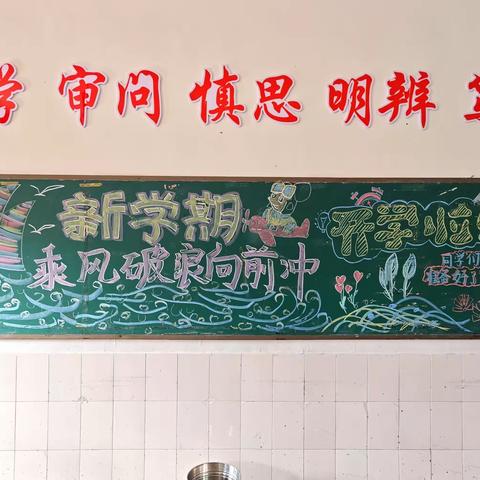 学 审问 慎思 明辨
新学期
乘风破浪向前冲
开学啦
同学们
准备好了